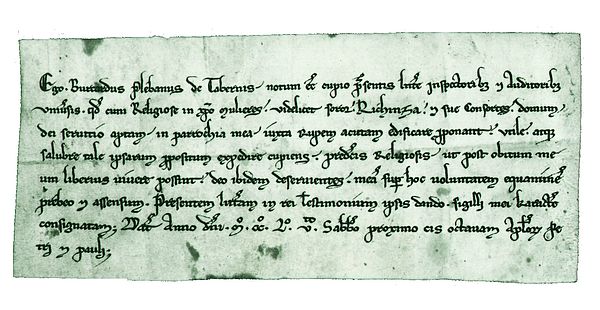 Ego. Burcardus Plebanus de Tobernis notum ee cupio p̄sentis litt̄e inspectoribȝ ⁊ Auditoribȝ
vniūsis. qd̄ cum Religiose in xp̄o mulieres. videlicet soror Richinza. ⁊ sue Consorores. domum
dei servitio aptam. in parrochia mea iuxta Rupem acutam edificare pponant. vtile. atqȝ
salubre tale ipsarum ppositum expedire cupiens. predc̄is Religiosis. ut post obitum me
um liberius vivere possint. deo ibidem deservientes. mei sup hoc voluntatem equanimit̄
prebeo ⁊ assensum. Presentem litt̄am in rei testimonium ipsis dando. sigilli mei karactē
consignatam; Dat̄ Anno dn̄i. M. CC. L. v. Sabbo proximo cis octavam Aplōꝝ Pe
tri ⁊ pauli;